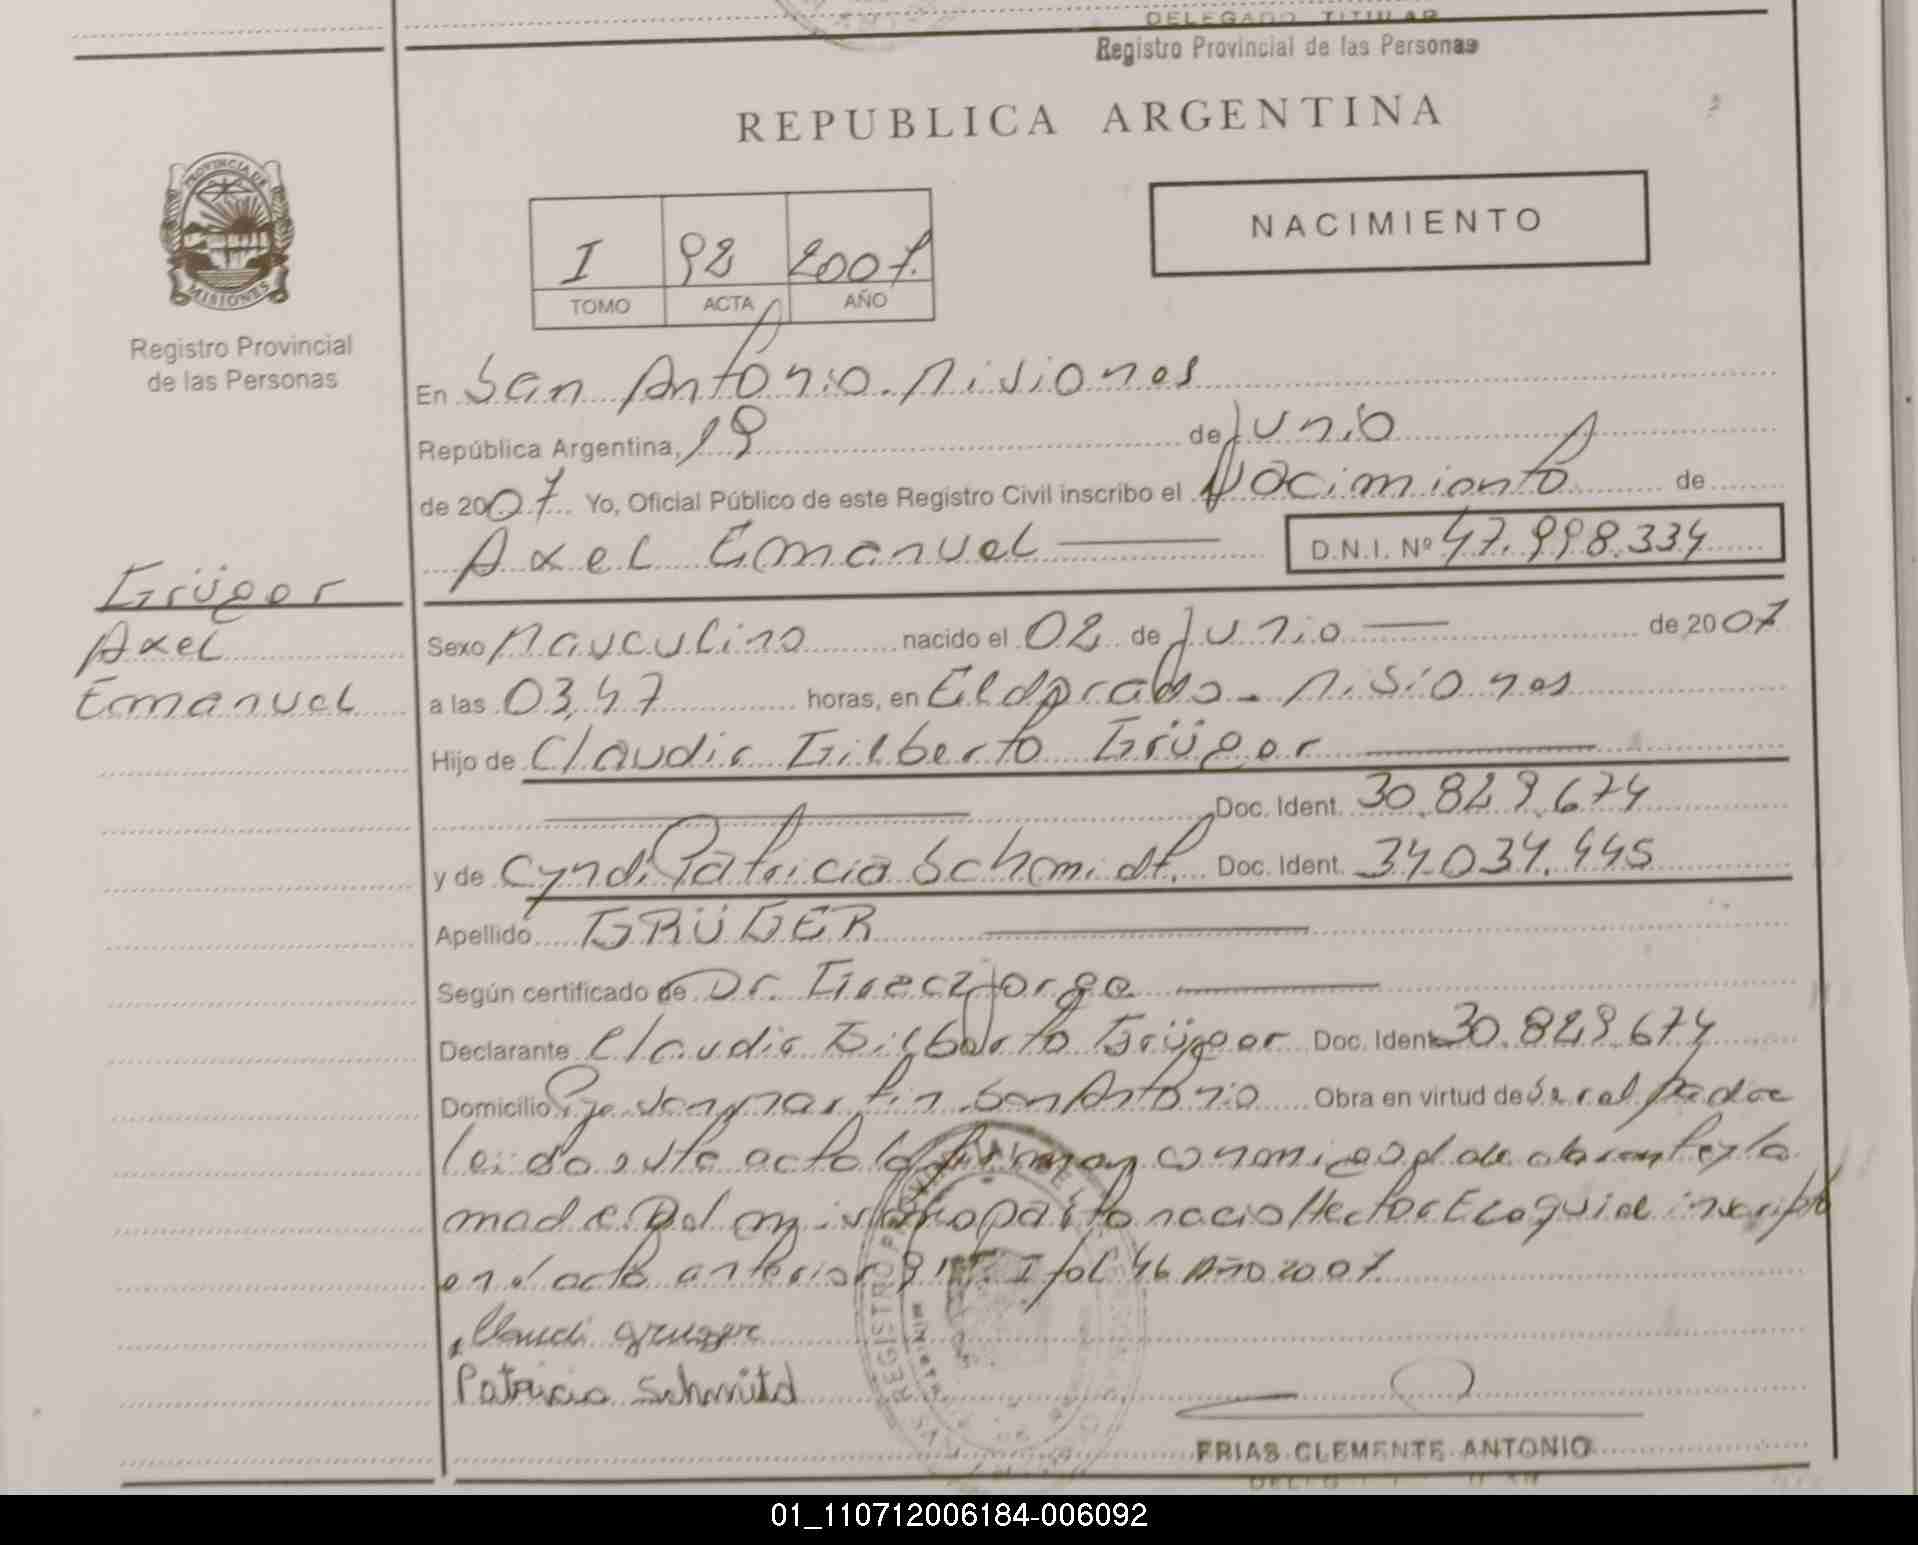 DELEGADO TITULAR
Registro Provincial de las Personas
REPUBLICA ARGENTINA
PROVINCIA DE
MISIONES
Registro Provincial
de las Personas
I 92 2007.
TOMO ACTA AÑO
NACIMIENTO
En San Antonio. Misiones
República Argentina, 19 de Junio
de 2007 Yo, Oficial Público de este Registro Civil inscribo el Nacimiento de
Axel Emanuel D.N.I. Nº 47.998.334
Grüger
Axel
Emanuel
Sexo Masculino nacido el 02 de Junio de 2007
a las 03,47 horas, en Eldorado - Misiones
Hijo de Claudir Gilberto Grüger
Doc. Ident. 30.829.674
y de Cyndi Patricia Schmidt. Doc. Ident. 34.034.445
Apellido GRÜGER
Según certificado de Dr. Jorge
Declarante Claudir Gilberto Grüger Doc. Ident. 30.829.674
Domicilio Pje San Martin. San Antonio Obra en virtud de ser el padre
leido este acta la firman conmigo el declarante y la
madre Del mismo parto nacio Hector Ezequiel inscripto
en el acta anterior 91 T. I fol 46 Año 2007.
Claudi gruger
Patricia Schmitd
FRIAS CLEMENTE ANTONIO
01_110712006184-006092